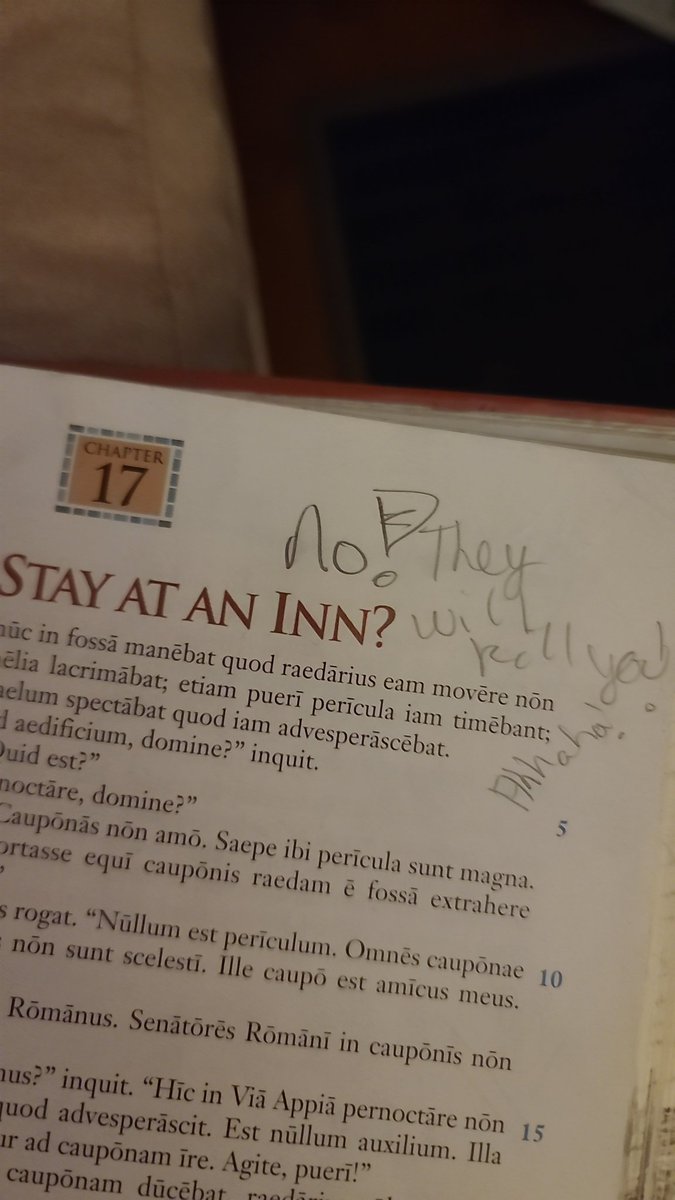 CHAPTER
17
No! They
will
kill you!
Ahhaha!
STAY AT AN INN?
in fossā manēbat quod raedārius eam movēre nōn
lacrimābat; etiam puerī perīcula iam timēbant;
spectābat quod iam advesperāscēbat.
aedificium, domine?” inquit.
Quid est?”
domine?”
Caupōnās nōn amō. Saepe ibi perīcula sunt magna.
5
equī caupōnis raedam ē fossā extrahere
rogat. “Nūllum est perīculum. Omnēs caupōnae
nōn sunt scelestī. Ille caupō est amīcus meus.
10
Rōmānus. Senātōrēs Rōmānī in caupōnīs nōn
inquit. “Hīc in Viā Appiā pernoctāre nōn
quod advesperāscit. Est nūllum auxilium. Illa
15
ad caupōnam īre. Agite, puerī!”
caupōnam dūcēbat